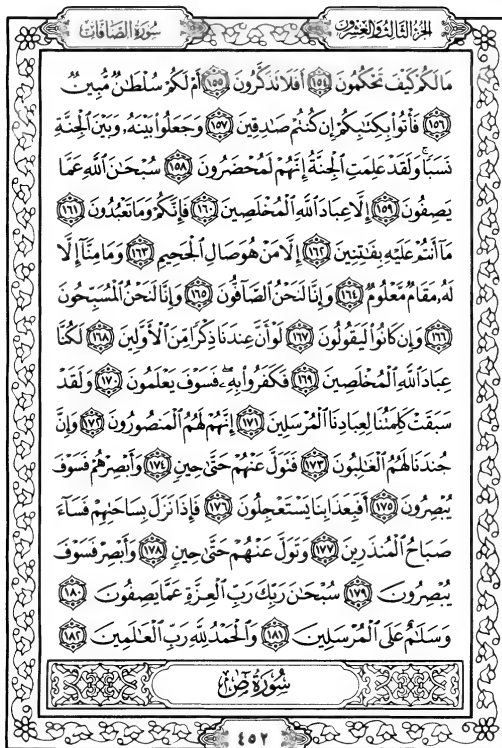 الجزء الثالث والعشرون سورة الصافات
مَا لَكُمْ كَيْفَ تَحْكُمُونَ ١٥٤ أَفَلَا تَذَكَّرُونَ ١٥٥ أَمْ لَكُمْ سُلْطَانٌ مُّبِينٌ
١٥٦ فَأْتُوا بِكِتَابِكُمْ إِن كُنتُمْ صَادِقِينَ ١٥٧ وَجَعَلُوا بَيْنَهُ وَبَيْنَ الْجِنَّةِ
نَسَبًا وَلَقَدْ عَلِمَتِ الْجِنَّةُ إِنَّهُمْ لَمُحْضَرُونَ ١٥٨ سُبْحَانَ اللَّهِ عَمَّا
يَصِفُونَ ١٥٩ إِلَّا عِبَادَ اللَّهِ الْمُخْلَصِينَ ١٦٠ فَإِنَّكُمْ وَمَا تَعْبُدُونَ ١٦١
مَا أَنتُمْ عَلَيْهِ بِفَاتِنِينَ ١٦٢ إِلَّا مَنْ هُوَ صَالِ الْجَحِيمِ ١٦٣ وَمَا مِنَّا إِلَّا
لَهُ مَقَامٌ مَّعْلُومٌ ١٦٤ وَإِنَّا لَنَحْنُ الصَّافُّونَ ١٦٥ وَإِنَّا لَنَحْنُ الْمُسَبِّحُونَ
١٦٦ وَإِن كَانُوا لَيَقُولُونَ ١٦٧ لَوْ أَنَّ عِندَنَا ذِكْرًا مِّنَ الْأَوَّلِينَ ١٦٨ لَكُنَّا
عِبَادَ اللَّهِ الْمُخْلَصِينَ ١٦٩ فَكَفَرُوا بِهِ فَسَوْفَ يَعْلَمُونَ ١٧٠ وَلَقَدْ
سَبَقَتْ كَلِمَتُنَا لِعِبَادِنَا الْمُرْسَلِينَ ١٧١ إِنَّهُمْ لَهُمُ الْمَنصُورُونَ ١٧٢ وَإِنَّ
جُندَنَا لَهُمُ الْغَالِبُونَ ١٧٣ فَتَوَلَّ عَنْهُمْ حَتَّىٰ حِينٍ ١٧٤ وَأَبْصِرْهُمْ فَسَوْفَ
يُبْصِرُونَ ١٧٥ أَفَبِعَذَابِنَا يَسْتَعْجِلُونَ ١٧٦ فَإِذَا نَزَلَ بِسَاحَتِهِمْ فَسَاءَ
صَبَاحُ الْمُنذَرِينَ ١٧٧ وَتَوَلَّ عَنْهُمْ حَتَّىٰ حِينٍ ١٧٨ وَأَبْصِرْ فَسَوْفَ
يُبْصِرُونَ ١٧٩ سُبْحَانَ رَبِّكَ رَبِّ الْعِزَّةِ عَمَّا يَصِفُونَ ١٨٠
وَسَلَامٌ عَلَى الْمُرْسَلِينَ ١٨١ وَالْحَمْدُ لِلَّهِ رَبِّ الْعَالَمِينَ ١٨٢
سُورَةُ ص
٤٥٢